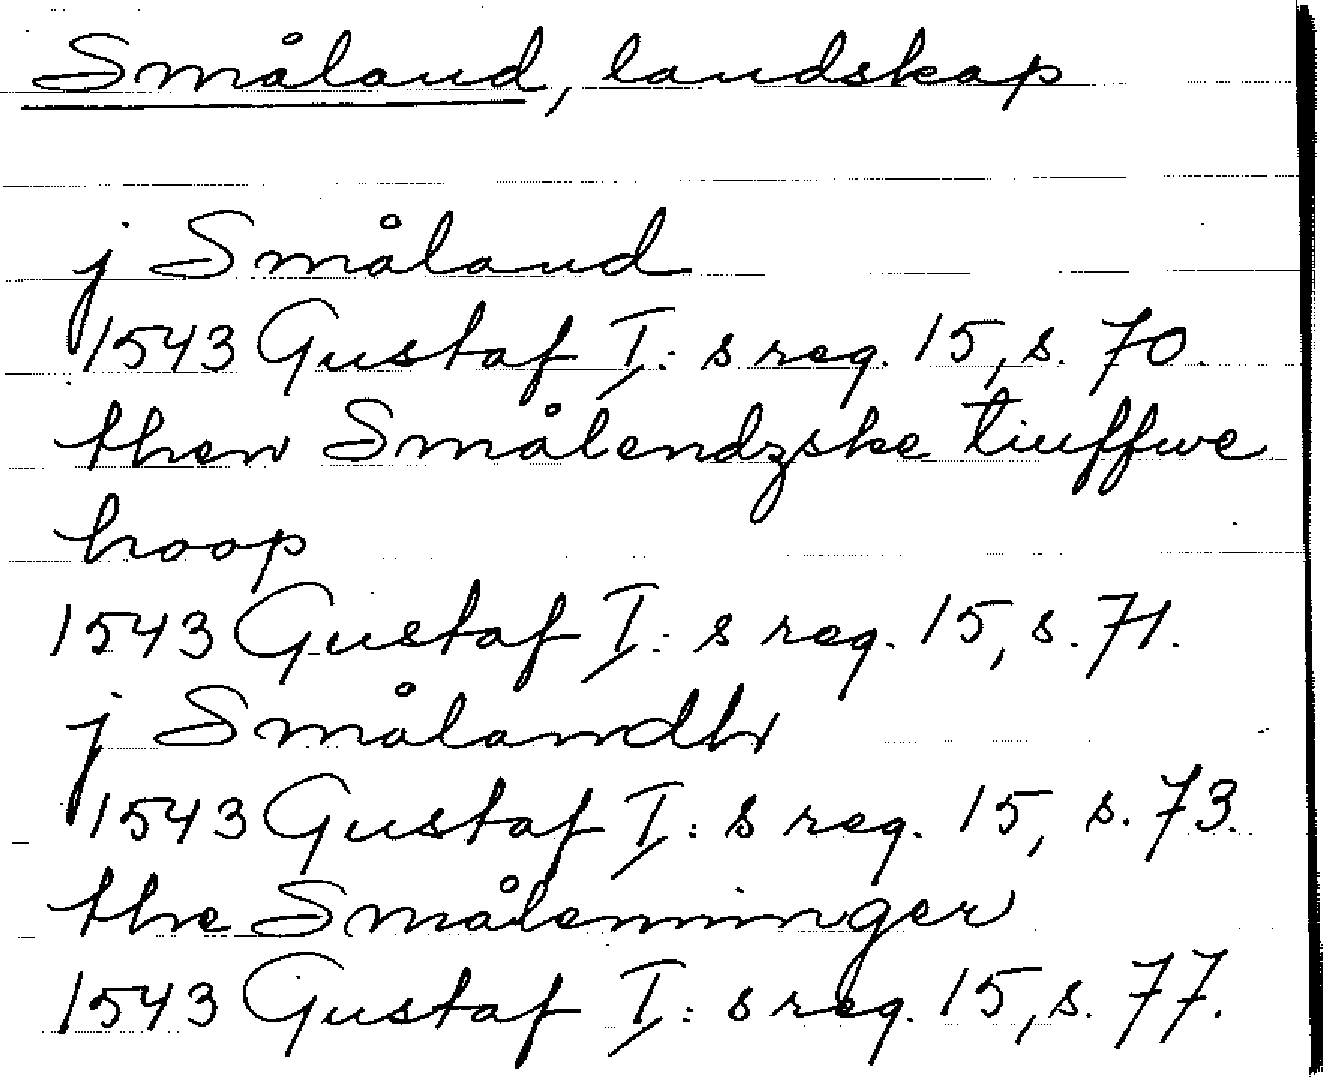 Småland, landskap
j Småland
1543 Gustaf I: s reg. 15, s. 70.
then Smålendzske tiuffwe
hoop
1543 Gustaf I: s reg. 15, s. 71.
j Smålandh
1543 Gustaf I: s reg. 15, s. 73.
the Småleninger
1543 Gustaf I: s reg. 15, s. 77.